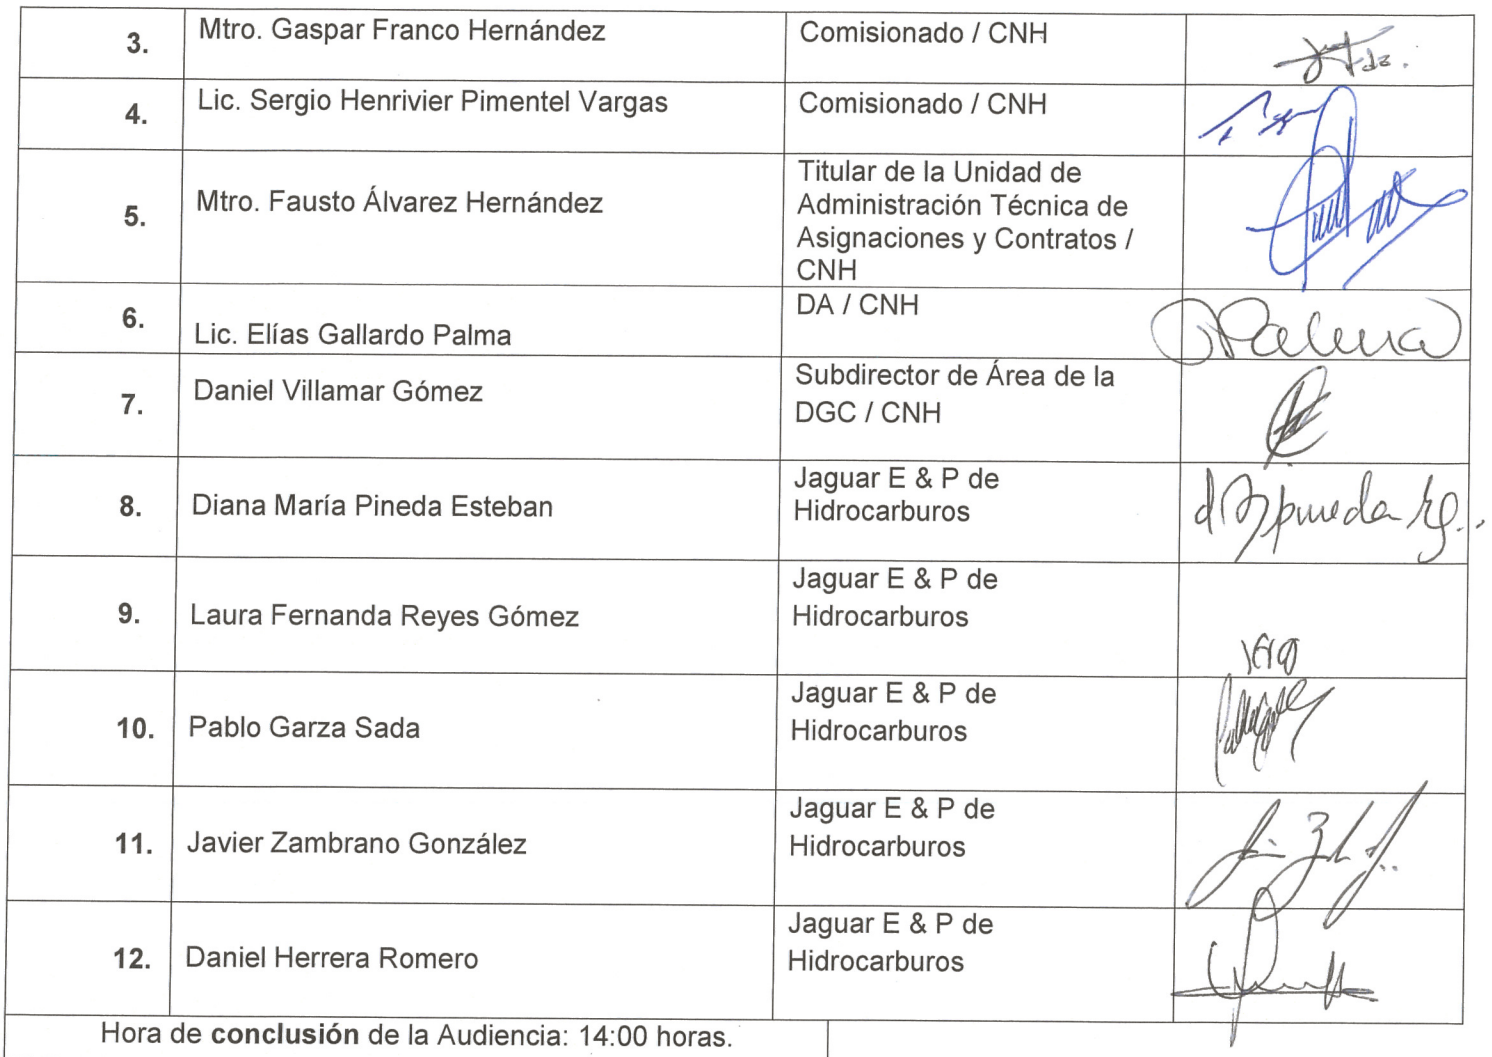 3.
Mtro. Gaspar Franco Hernández
Comisionado / CNH
4.
Lic. Sergio Henrivier Pimentel Vargas
Comisionado / CNH
5.
Mtro. Fausto Álvarez Hernández
Titular de la Unidad de
Administración Técnica de
Asignaciones y Contratos /
CNH
6.
Lic. Elías Gallardo Palma
DA / CNH
Palma
7.
Daniel Villamar Gómez
Subdirector de Área de la
DGC / CNH
8.
Diana María Pineda Esteban
Jaguar E & P de
Hidrocarburos
9.
Laura Fernanda Reyes Gómez
Jaguar E & P de
Hidrocarburos
10.
Pablo Garza Sada
Jaguar E & P de
Hidrocarburos
11.
Javier Zambrano González
Jaguar E & P de
Hidrocarburos
12.
Daniel Herrera Romero
Jaguar E & P de
Hidrocarburos
Hora de conclusión de la Audiencia: 14:00 horas.